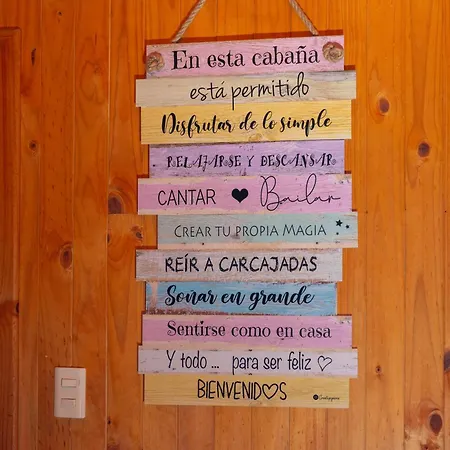 En esta cabaña
está permitido
Disfrutar de lo simple
RELAJARSE Y DESCANSAR
CANTAR ♥ Bailar
CREAR TU PROPIA MAGIA
REÍR A CARCAJADAS
Soñar en grande
Sentirse como en casa
Y todo ... para ser feliz ♡
BIENVENID♡S